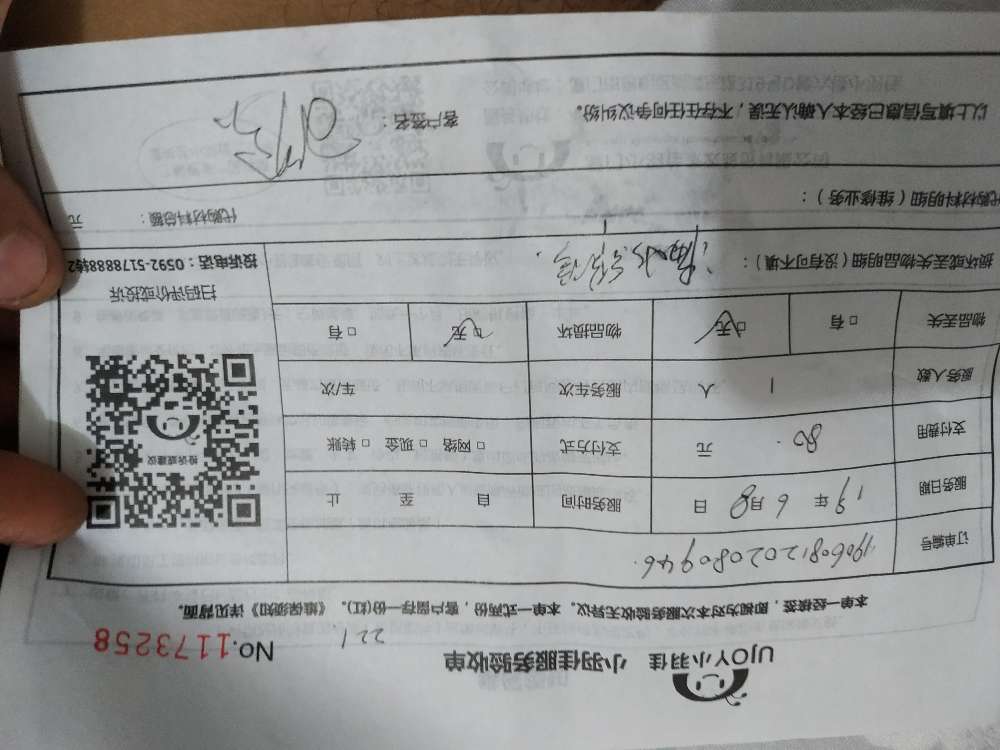 UJOY小羽佳 小羽佳服务验收单 221 No.1173258
本单一经接签，即视为对本次服务验收无异议。本单一式两份，客户留存一份(红)。《维保须知》详见背面。
订单编号 1906081202080946
服务日期 19年6月8日 服务时间 自 至 止
支付费用 80. 元 支付方式 □网络 □现金 □转账
服务人数 1 人 服务车次 车次
物品丢失 □有 □无 物品损坏 □无 □有
投诉或建议
扫码评价或投诉
投诉电话：0592-5178888转2
损坏或丢失物品明细（没有可不填）：
代购材料明细（维修业务）： 代购材料总额： 元
以上填写信息已经本人确认无误，不存在任何争议纠纷。 客户签名：